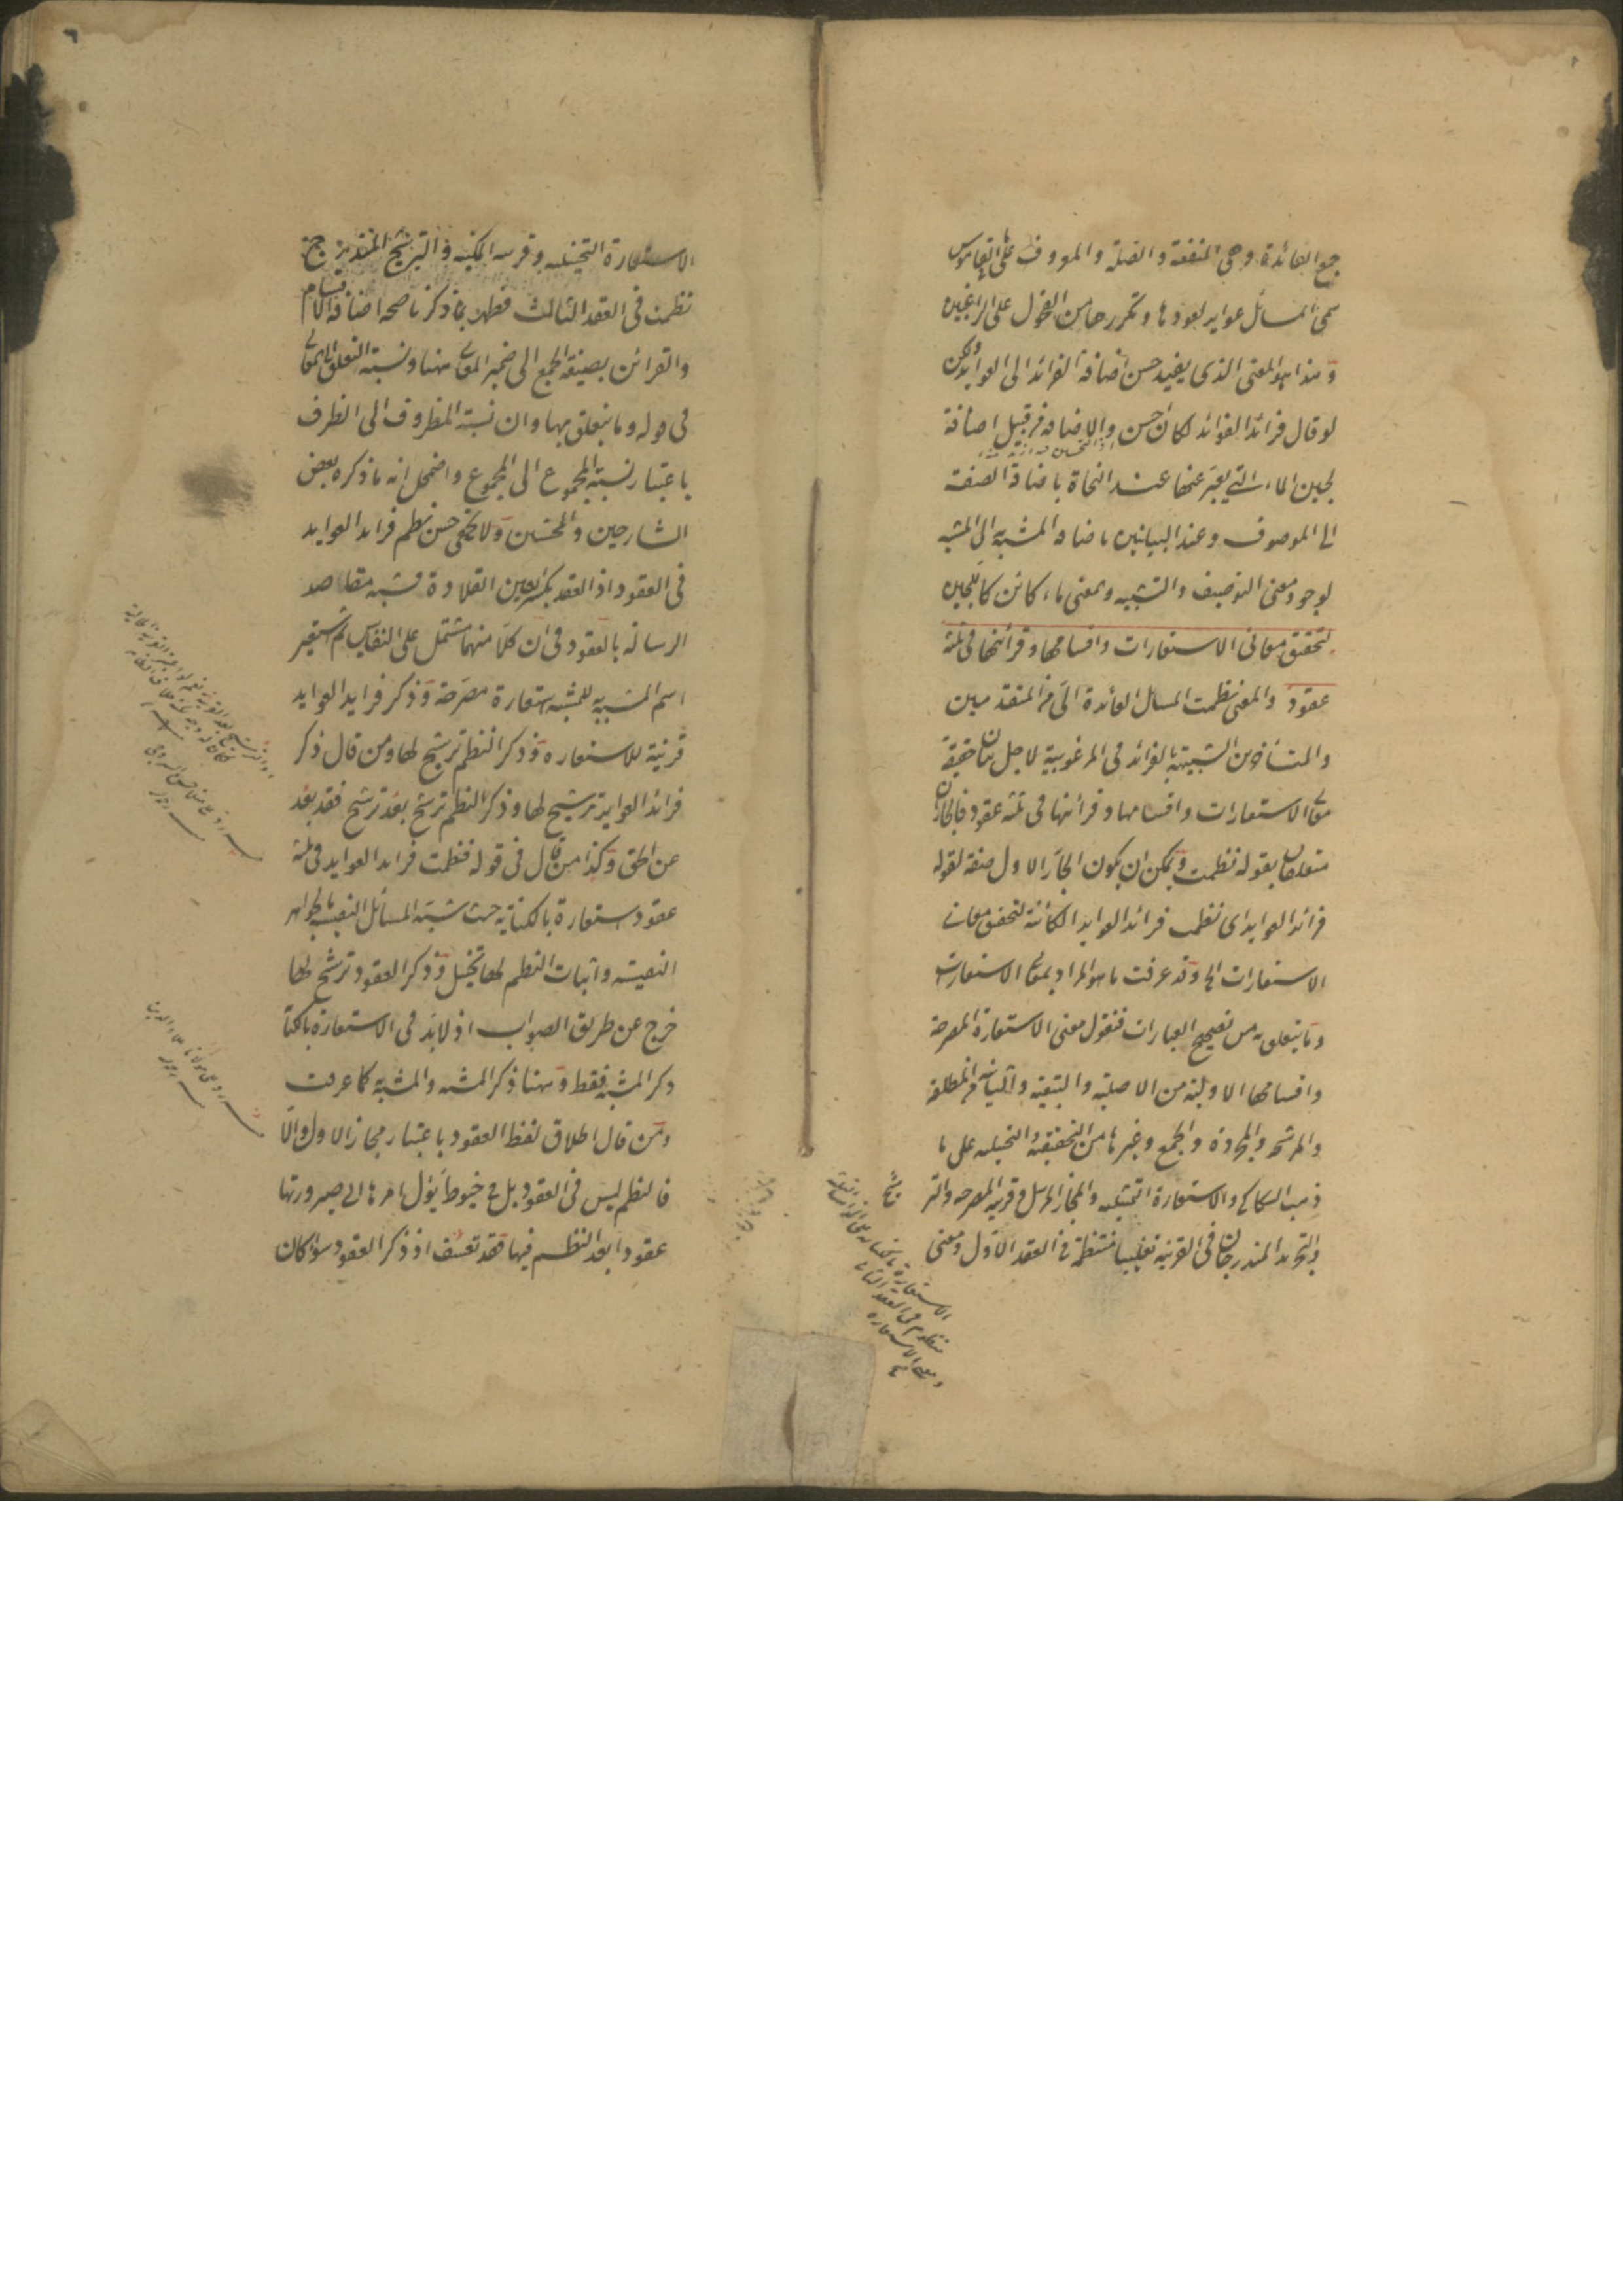 جمع العائدة وهى المنفعة والصلة والمعروف على ما فى القاموس
سمى المسائل عوايد لعودها وتكررها من الفحول على الراغبين
وهذا هو المعنى الذى يفيد حسن اضافة الفرائد الى العوايد ولكن
لو قال فرائد الفوائد لكان احسن والاضافة من قبيل اضافة
لجين الماء التى يعبر عنها عند النحاة باضافة الصفة
الى الموصوف وعند البيانيين باضافة المشبه به الى المشبه
لوجود معنى التوصيف والتشبيه وبمعنى ماء كائن كاللجين
لتحقيق معانى الاستعارات واقسامها وقرائنها فى ثلثة
عقود والمعنى نظمت المسائل العائدة الىّ من المتقدمين
والمتأخرين الشبيهة بالفرائد فى المرغوبية لاجل بيان حقيقة
معانى الاستعارات واقسامها وقرائنها فى ثلثة عقود فالجاران
متعلقان بقوله نظمت ويمكن ان يكون الجار الاول صفة لقوله
فرائد العوايد اى نظمت فرائد العوايد الكائنة لتحقيق معانى
الاستعارات الخ وقد عرفت ما هو المراد بمعانى الاستعارات
وما يتعلق به من تصحيح العبارات فنقول معنى الاستعارة المصرحة
واقسامها الاولية من الاصلية والتبعية والثانية من المطلقة
والمرشحة والمجردة والجمع وغيرها من التحقيقية والتخييلية على ما
ذهب السكاكى والاستعارة التمثيلية والمجاز المرسل وقرينة المصرحة والترشيح
والتجريد المندرجان فى القرينة تغليبا منتظمة فى العقد الاول ومعنى
الاستعارة بالكناية على
منظوم فى العقد الثانى
ومعنى الاستعارة
الاستعارة التخييلية وقرينة المكنية والترشيح
نظمت فى العقد الثالث فظهر بما ذكرنا صحة اضافة الاقسام
والقرائن بصيغة الجمع الى ضمير المعانى ههنا ونسبة التعلق الى المعانى
فى قوله وما يتعلق بها وان نسبة المظروف الى الظرف
باعتبار نسبة المجموع الى المجموع واضمحل انه ما ذكره بعض
الشارحين والمحشين ولا يخفى حسن نظم فرايد العوايد
فى العقود اذ العقد بكسر العين القلادة فشبه مقاصد
الرسالة بالعقود فى ان كلا منهما مشتمل على النفايس ثم استعير
اسم المشبه به للمشبه استعارة مصرحة وذكر فرايد العوايد
قرينة للاستعارة وذكر النظم ترشيح لها ومن قال ذكر
فرائد العوايد ترشيح لها وذكر النظم ترشيح بعد ترشيح فقد بعد
عن الحق وكذا من قال فى قوله فنظمت فرايد العوايد فى ثلثة
عقود استعارة بالكناية حيث شبه المسائل النفيسة بالجواهر
النفيسة واثبات النظم لها تخييل وذكر العقود ترشيح لها
خرج عن طريق الصواب اذ لا بد فى الاستعارة بالكناية
ذكر المشبه فقط وههنا ذكر المشبه والمشبه به كما عرفت
ومن قال اطلاق لفظ العقود باعتبار مجاز الاول والا
فالنظم ليس فى العقود بل فى خيوط يؤل امرها الى صيرورتها
عقودا بعد النظم فيها فقد تعسف اذ ذكر العقود سواء كان